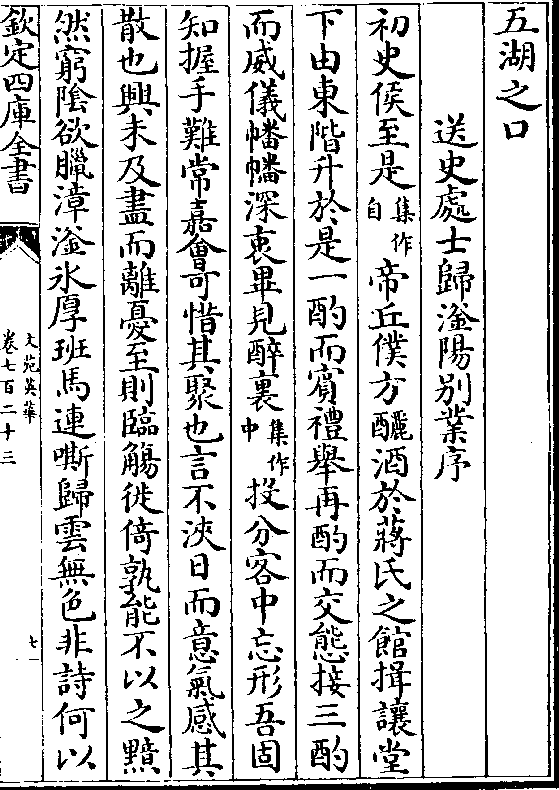 五湖之口
送史處士歸滏陽别業序
初史侯至是集作自帝丘僕方釃酒於蔣氏之館揖讓堂
下由東階升於是一酌而賓禮舉再酌而交態接三酌
而威儀幡幡深衷畢見醉裏集作中投分客中忘形吾固
知握手難常嘉會可惜其聚也言不浹日而意氣感其
散也興未及盡而離憂至則臨觴徙倚孰能不以之黯
然窮陰欲臘漳滏氷厚班馬連嘶歸雲無色非詩何以
欽定四庫全書
文苑英華
卷七百二十三
七